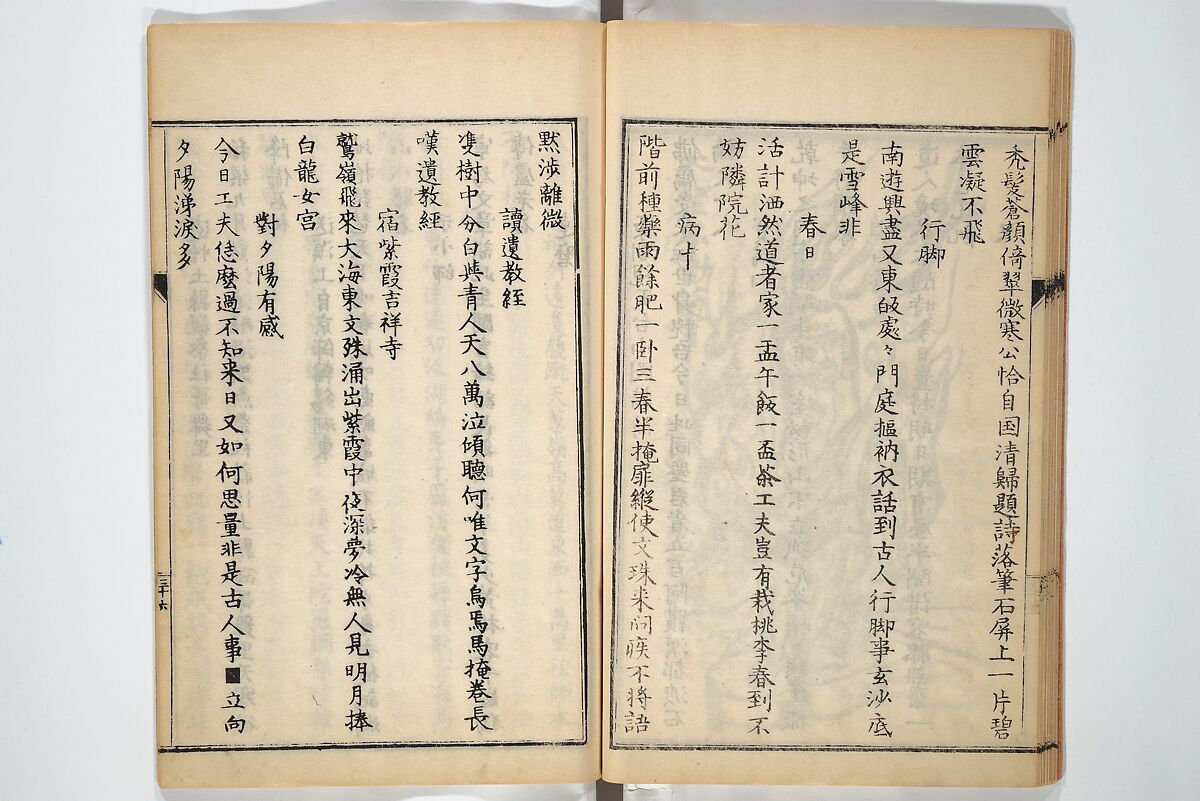 禿髮蒼顔倚翠微寒公恰自国清歸題詩落筆石屏上一片碧
雲凝不飛
行脚
南遊興盡又東皈處々門庭摳衲衣話到古人行脚事玄沙底
是雪峰非
春日
活計洒然道者家一盂午飯一盃茶工夫豈有栽桃李春到不
妨隣院花
病中
階前種藥雨餘肥一卧三春半掩扉縱使文珠来问疾不将語
黙涉離微
讀遺教経
雙樹中分白與青人天八萬泣傾聴何唯文字烏焉馬掩卷長
嘆遺教経
宿紫霞吉祥寺
鷲嶺飛來大海東文殊涌出紫霞中夜深夢冷無人見明月捧
白龍女宮
對夕陽有感
今日工夫恁麽過不知来日又如何思量非是古人事■立向
夕陽涕淚多
三十六